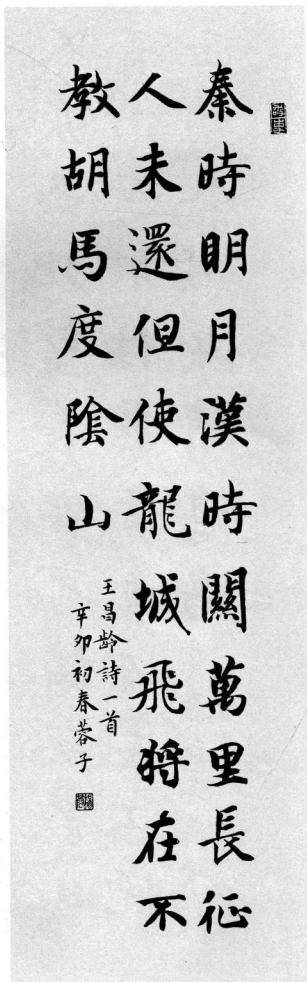 秦時明月漢時關萬里長征
人未還但使龍城飛將在不
教胡馬度陰山
王昌齡詩一首
辛卯初春蓉子